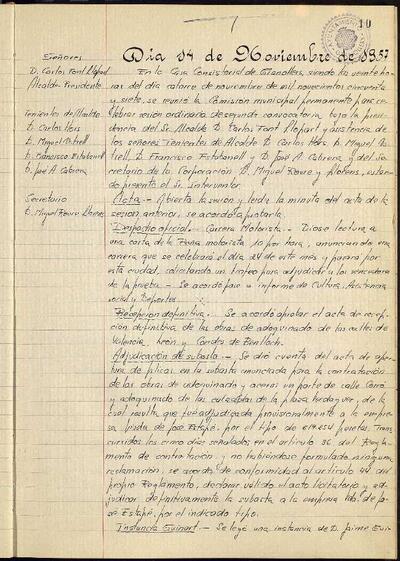 10
Día 14 de Noviembre de 1957
Señores
D. Carlos Font Llopart
Alcalde-Presidente
Tenientes de Alcalde
D. Carlos Heis
D. Miguel Petrell
D. Francisco Estabanell
D. José A. Cabrera
Secretario
D. Miguel Roure Llorens
En la Casa Consistorial de Granollers, siendo las veinte ho-
ras del día catorce de noviembre de mil novecientos cincuenta
y siete, se reunió la Comisión municipal permanente para ce-
lebrar sesión ordinaria de segunda convocatoria bajo la presi-
dencia del Sr. Alcalde D. Carlos Font Llopart y asistencia de
los señores Tenientes de Alcalde D. Carlos Heis D. Miguel Pe-
trell, D. Francisco Estabanell y D. José A. Cabrera, y del Se-
cretario de la Corporación D. Miguel Roure y Llorens, estan-
do presente el Sr. Interventor.
Acta.- Abierta la sesión y leída la minuta del acta de la
sesión anterior, se acordó aprobarla.
Despacho oficial.- Carrera Motorista.- Diose lectura a
una carta de la Peña motorista 10 por hora, anunciando una
carrera que se celebrará el día 24 de este mes y pasará por
esta ciudad, solicitando un trofeo para adjudicar a los vencedores
de la prueba - Se acordó pase a informe de Cultura, Asistencia
social y Deportes.
Recepción definitiva.- Se acordó aprobar el acta de recep-
ción definitiva de las obras de adoquinado de las calles de
Valencia, León y Condes de Bentloch.
Adjudicación de subasta.- Se dió cuenta del acta de aper-
tura de plicas en la subasta anunciada para la contratación
de las obras de adoquinado y aceras en parte de calle Corró
y adoquinado de las calzadas de la plaza Perdaguer, de la
cual resulta que fué adjudicada provisionalmente a la empre-
sa Viuda de José Estapé, por el tipo de pesetas. Trans-
curridos los cinco días señalados en el artículo 36 del Regla-
mento de contratación y no habiéndose formulado ninguna
reclamación, se acordó de conformidad al artículo 44 del
propio Reglamento, declarar válido el acto licitatorio y ad-
judicar definitivamente la subasta a la empresa Vda. de Jo-
sé Estapé, por el indicado tipo.
Instancia Guinart.- Se leyó una instancia de D. Jaime Gui-